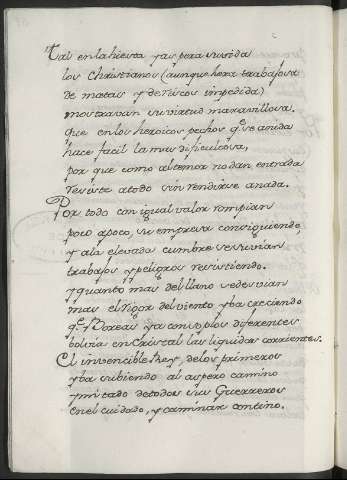 Tal en la hiesta y aspera suvida
los Christianos (aunque hera trabajosa
de matas y de riscos impedida)
mostravan su virtud maravillosa.
que en los heroicos pechos q.e se anida
hace facil la mas dificultosa,
por que como al temor no dan entrada
resiste a todo sin rendirse a nada.
Por todo con igual valor rompian
poco a poco, su empresa consiguiendo,
y a la elevada cumbre se suvian
trabajos y peligros resistiendo.
y quanto mas del llano se desvian
mas el rigor del viento yba creciendo
q.e Boreas ya con soplos diferentes
bolvia en Cristal las liquidas corrientes.
El invencible Rey de los primeros
yba subiendo al aspero camino
ymitado de todos sus Guerreros
en el cuidado, y caminar contino.